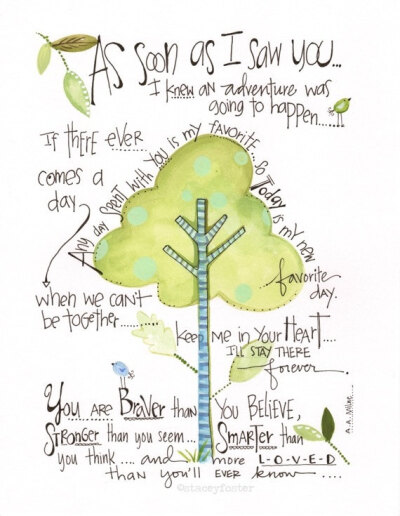 As soon as I saw you...
I knew an adventure was
going to happen......
If there ever
comes a
day
Any day spent with you is my favorite... so Today is my new
favorite
day.
when we can't
be together..........
keep me in your Heart....
I'll stay there
forever.
You are Braver than you believe,
Stronger than you seem... Smarter than
you think.... and more L-O-V-E-D
than you'll ever know.....
A.A. Milne
©staceyfoster